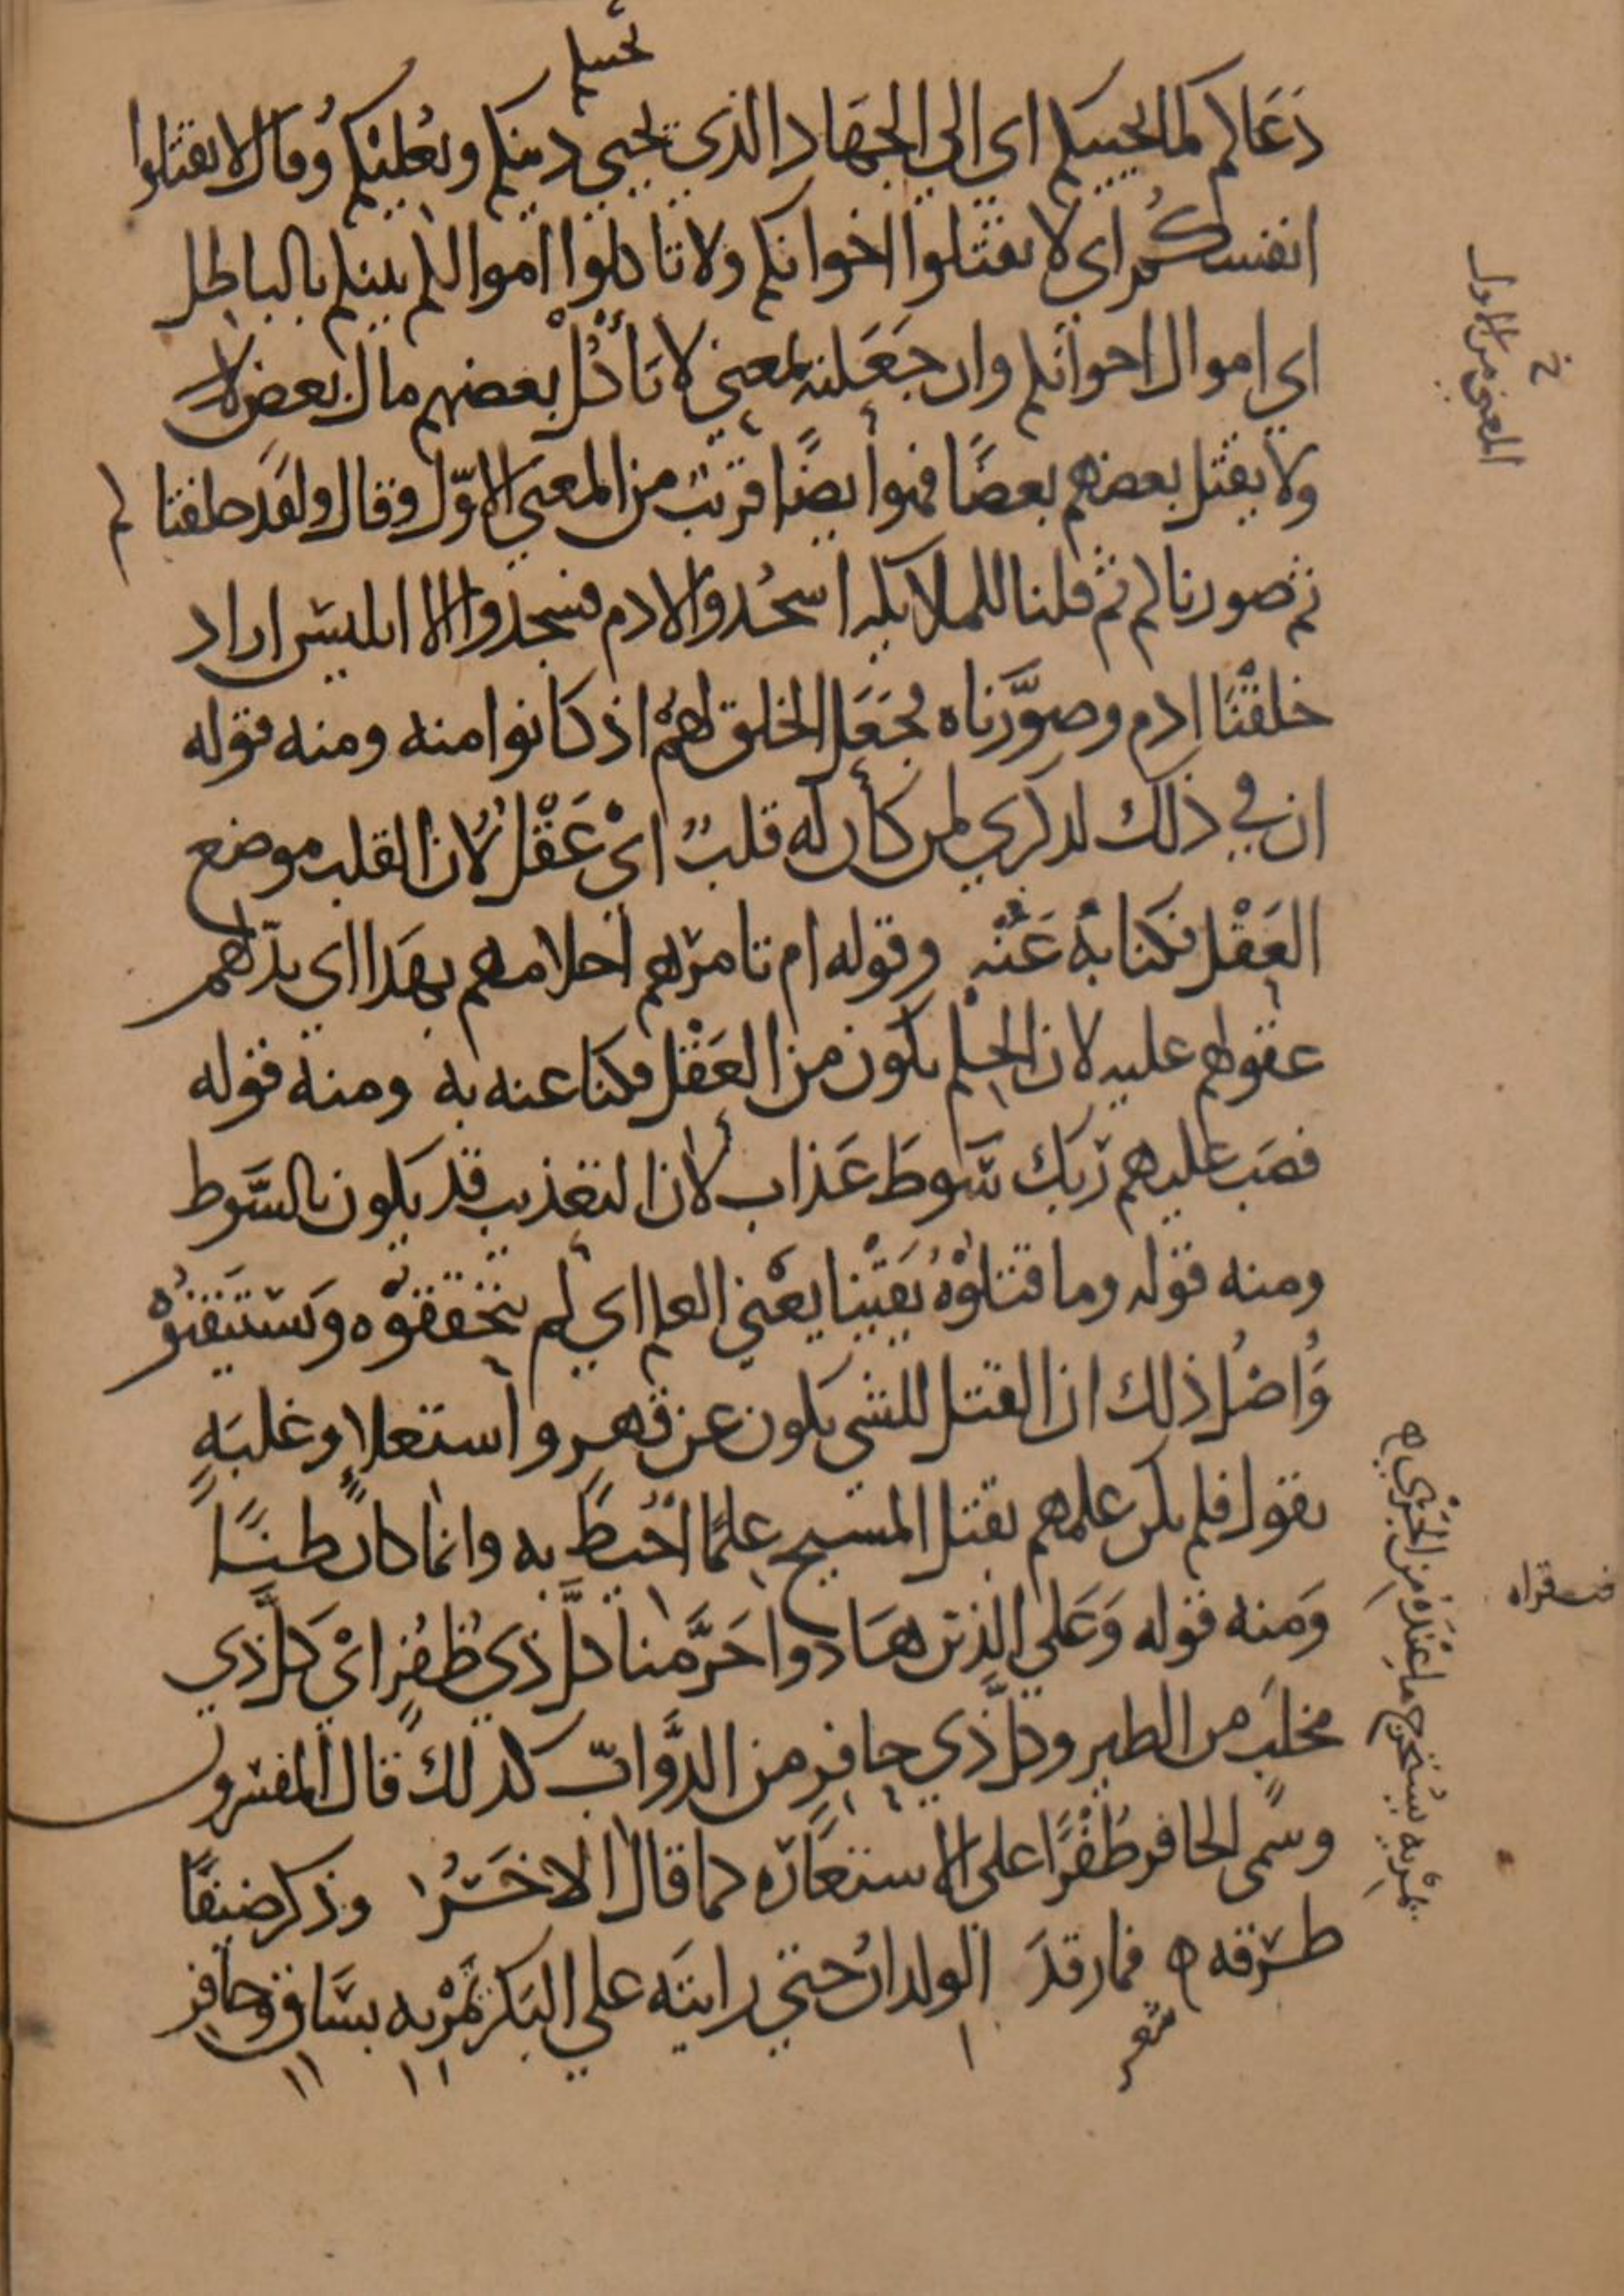 يحييكم
دعاكم لما يحييكم اي الى الجهاد الذي يحيي دينكم ويعليكم وقال لا تقتلوا
انفسكم اي لا تقتلوا اخوانكم ولا تاكلوا اموالكم بينكم بالباطل
اي اموال اخوانكم وان جعلته بمعنى لا تأكل بعضهم مال بعض
ولا يقتل بعضهم بعضًا فهو أيضًا قريب من المعنى الاوّل وقال ولقد خلقناكم
ثم صورناكم ثم قلنا للملايكه اسجُدوا لادم فسجدوا الا ابليس اراد
خلقْنَا ادم وصوَّرناه فجَعَل الخلق لهمْ اذ كانوا منه ومنه قوله
ان في ذلك لذكري لمن كان له قلبٌ ايْ عَقْلٌ لان القلب موضع
العَقْل فكنا به عَنْه وقوله ام تامرهم أحلامهم بهَذا اي تدلهم
عقولهم عليه لان الحِلم يكون من العَقْل فكنا عنه به ومنه قوله
فصَب عليهم ربك سَوطَ عَذاب لان التعذيب قد يكون بالسَّوط
ومنه قوله وما قتلوْهُ يَقيْنا يعْني العلم اي لم يتحققوْه ويستيقنوْه
وَاصْلُ ذلك ان القتل للشي يكون عن قهر واستعلاءٍ وغلبَةٍ
يقول فلم يكن علمهم بقتل المسيح علمًا اُحيط به وانما كان ظنًّا
وَمنه قوله وَعَلي الذين هَادوا حَرَّمنا كلَّ ذي ظُفُرٍ ايْ كلَّ ذي
مخلبٍ من الطير وكلَّ ذي حافرٍ من الدَّوابّ كذلك قال المفسرون
وسمى الحافر ظُفْرًا على الاستعَارَه كما قال الاخَرُ وذكر ضيفًا
طرقه ه فما رقدَ الولدانُ حتي رايتَه علي البَكْر يَمْريه بسَاقٍ وحَافِر
المعنى من الاول
خ
يَمْريه يُستخرج ما عنْدَهُ من الجَرْي ه
شعر